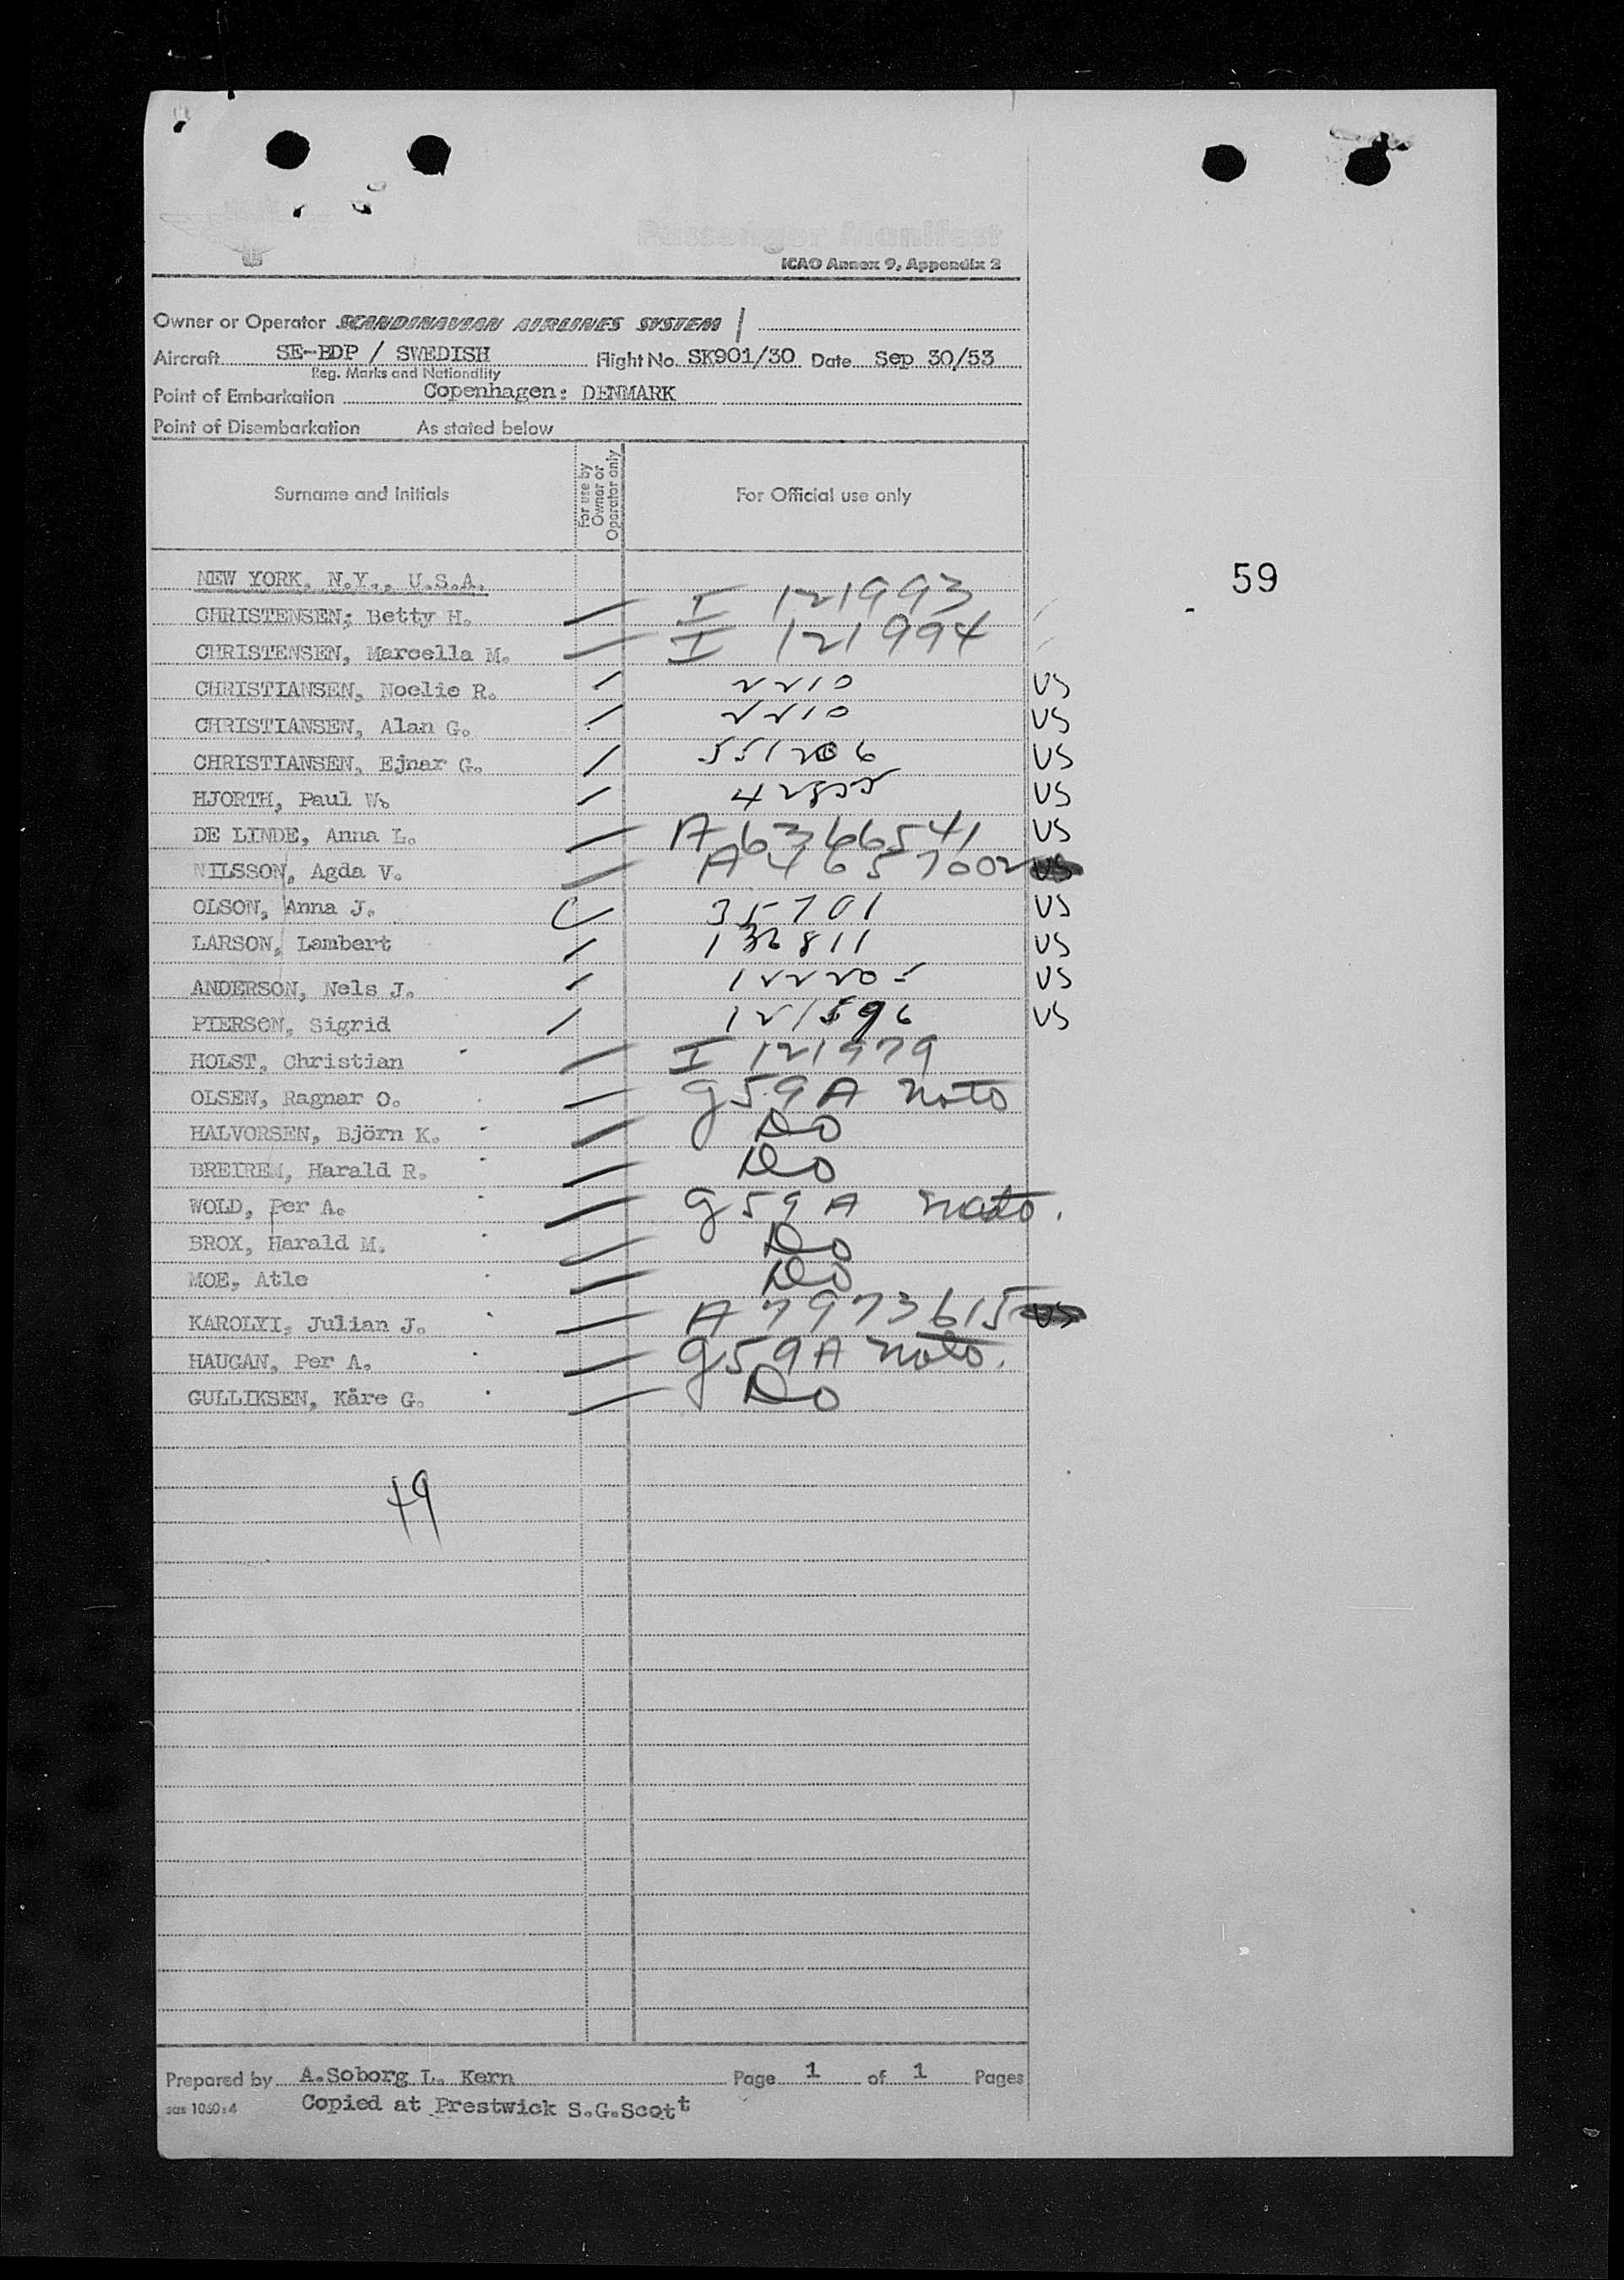 Passenger Manifest
ICAO Annex 9, Appendix 2
Owner or Operator SCANDINAVIAN AIRLINES SYSTEM
Aircraft SE-BDP / SWEDISH Flight No. SK901/30 Date Sep 30/53
Reg. Marks and Nationality
Point of Embarkation Copenhagen: DENMARK
Point of Disembarkation As stated below
Surname and Initials For use by Owner or Operator only For Official use only
NEW YORK, N.Y., U.S.A.
59
CHRISTENSEN; Betty H. I 121993
CHRISTENSEN, Marcella M. I 121994
CHRISTIANSEN, Noelie R. 2210 US
CHRISTIANSEN, Alan G. 2210 US
CHRISTIANSEN, Ejnar G. 551206 US
HJORTH, Paul W. US
DE LINDE, Anna L. A 6366541 US
NILSSON, Agda V. A 4657002 US
OLSON, Anna J. 35701 US
LARSON, Lambert US
ANDERSON, Nels J. 122205 US
PIERSON, Sigrid 121596 US
HOLST, Christian I 121979
OLSEN, Ragnar O. G59A Nato
HALVORSEN, Björn K. Do
BREIREM, Harald R. Do
WOLD, Per A. G59A Nato.
BROX, Harald M. Do
MOE, Atle Do
KAROLYI, Julian J. A 7973615 US
HAUGAN, Per A. G59A Nato.
GULLIKSEN, Kåre G. Do
49
Prepared by A.Soborg L. Kern Page 1 of 1 Pages
sas 1060:4 Copied at Prestwick S.G.Scott